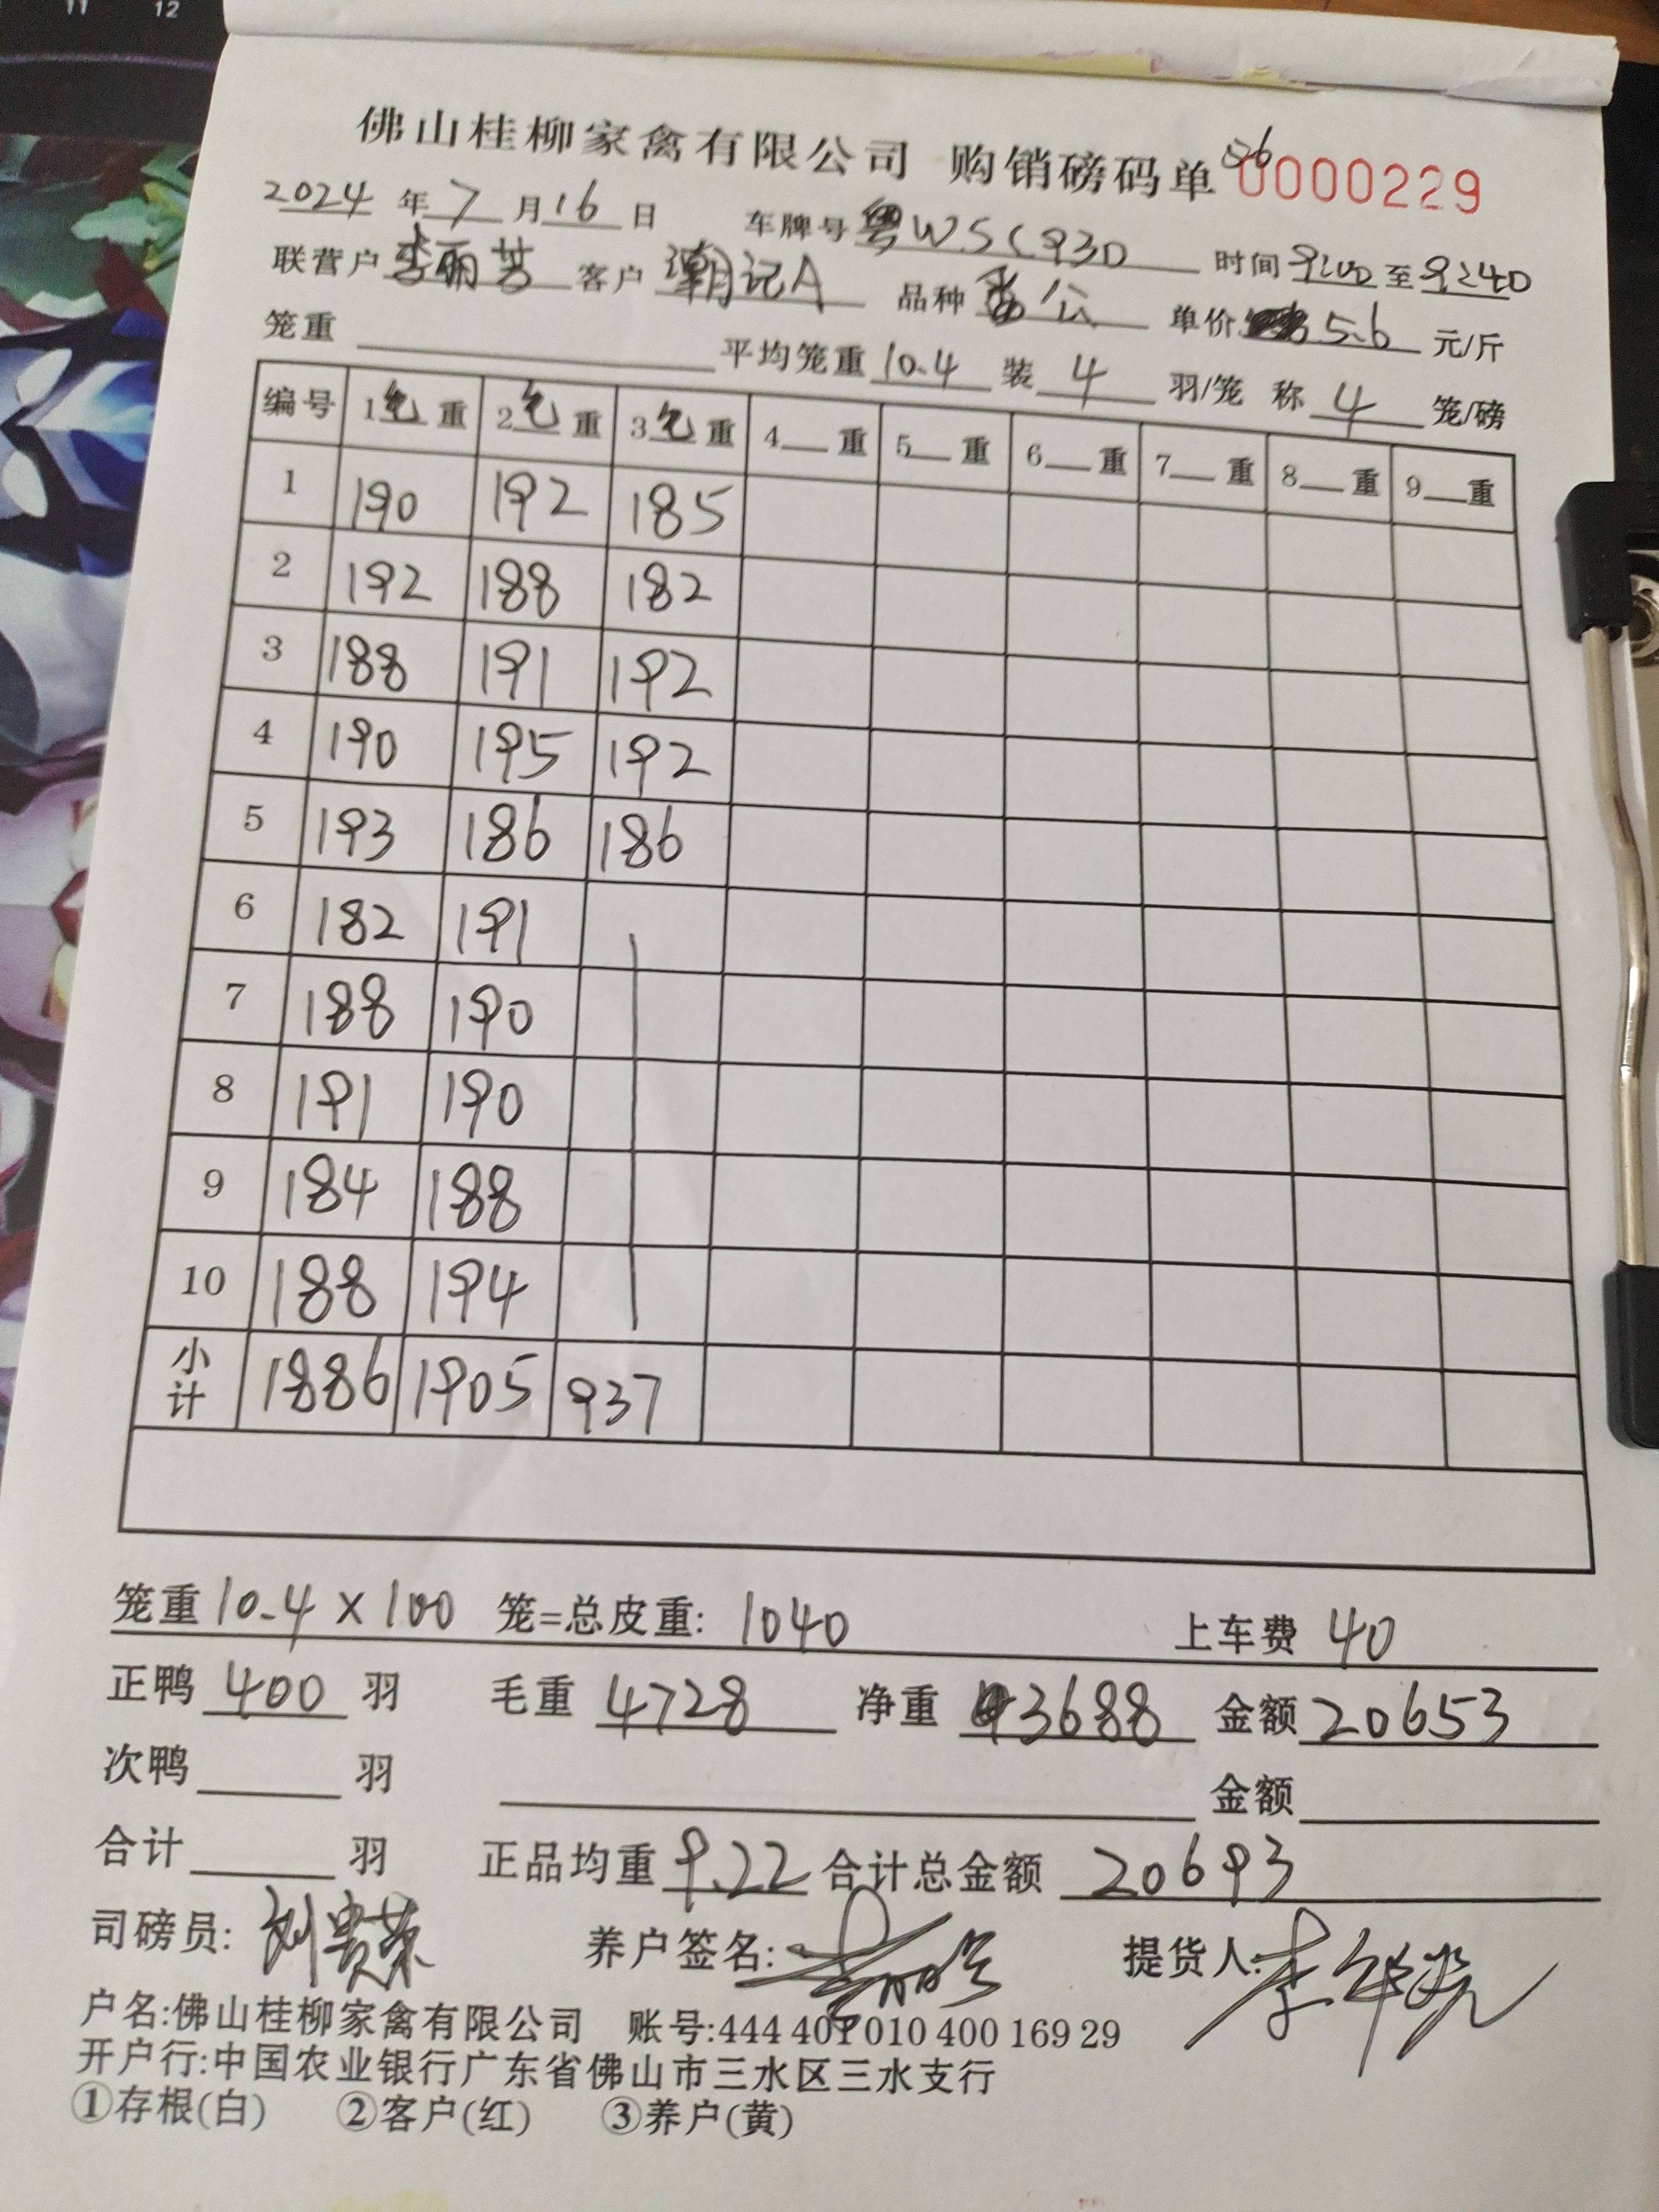 11 12
佛山桂柳家禽有限公司 购销磅码单 0000229
2024年7月16日 车牌号粤WSC93D 时间9:00至9:240
联营户李丽芳 客户潮记A 品种番公 单价5.6元/斤
笼重 平均笼重10.4 装4羽/笼 称4笼/磅
编号 1毛重 2毛重 3毛重 4__重 5__重 6__重 7__重 8__重 9__重
1 190 192 185
2 192 188 182
3 188 191 192
4 190 195 192
5 193 186 186
6 182 191
7 188 190
8 191 190
9 184 188
10 188 194
小计 1886 1905 937
笼重10.4×100 笼=总皮重: 1040 上车费 40
正鸭 400 羽 毛重 4728 净重 3688 金额20653
次鸭 羽 金额
合计 羽 正品均重9.22 合计总金额 20693
司磅员:刘贵荣 养户签名: 提货人:
户名:佛山桂柳家禽有限公司 账号:444 401 010 400 169 29
开户行:中国农业银行广东省佛山市三水区三水支行
①存根(白) ②客户(红) ③养户(黄)